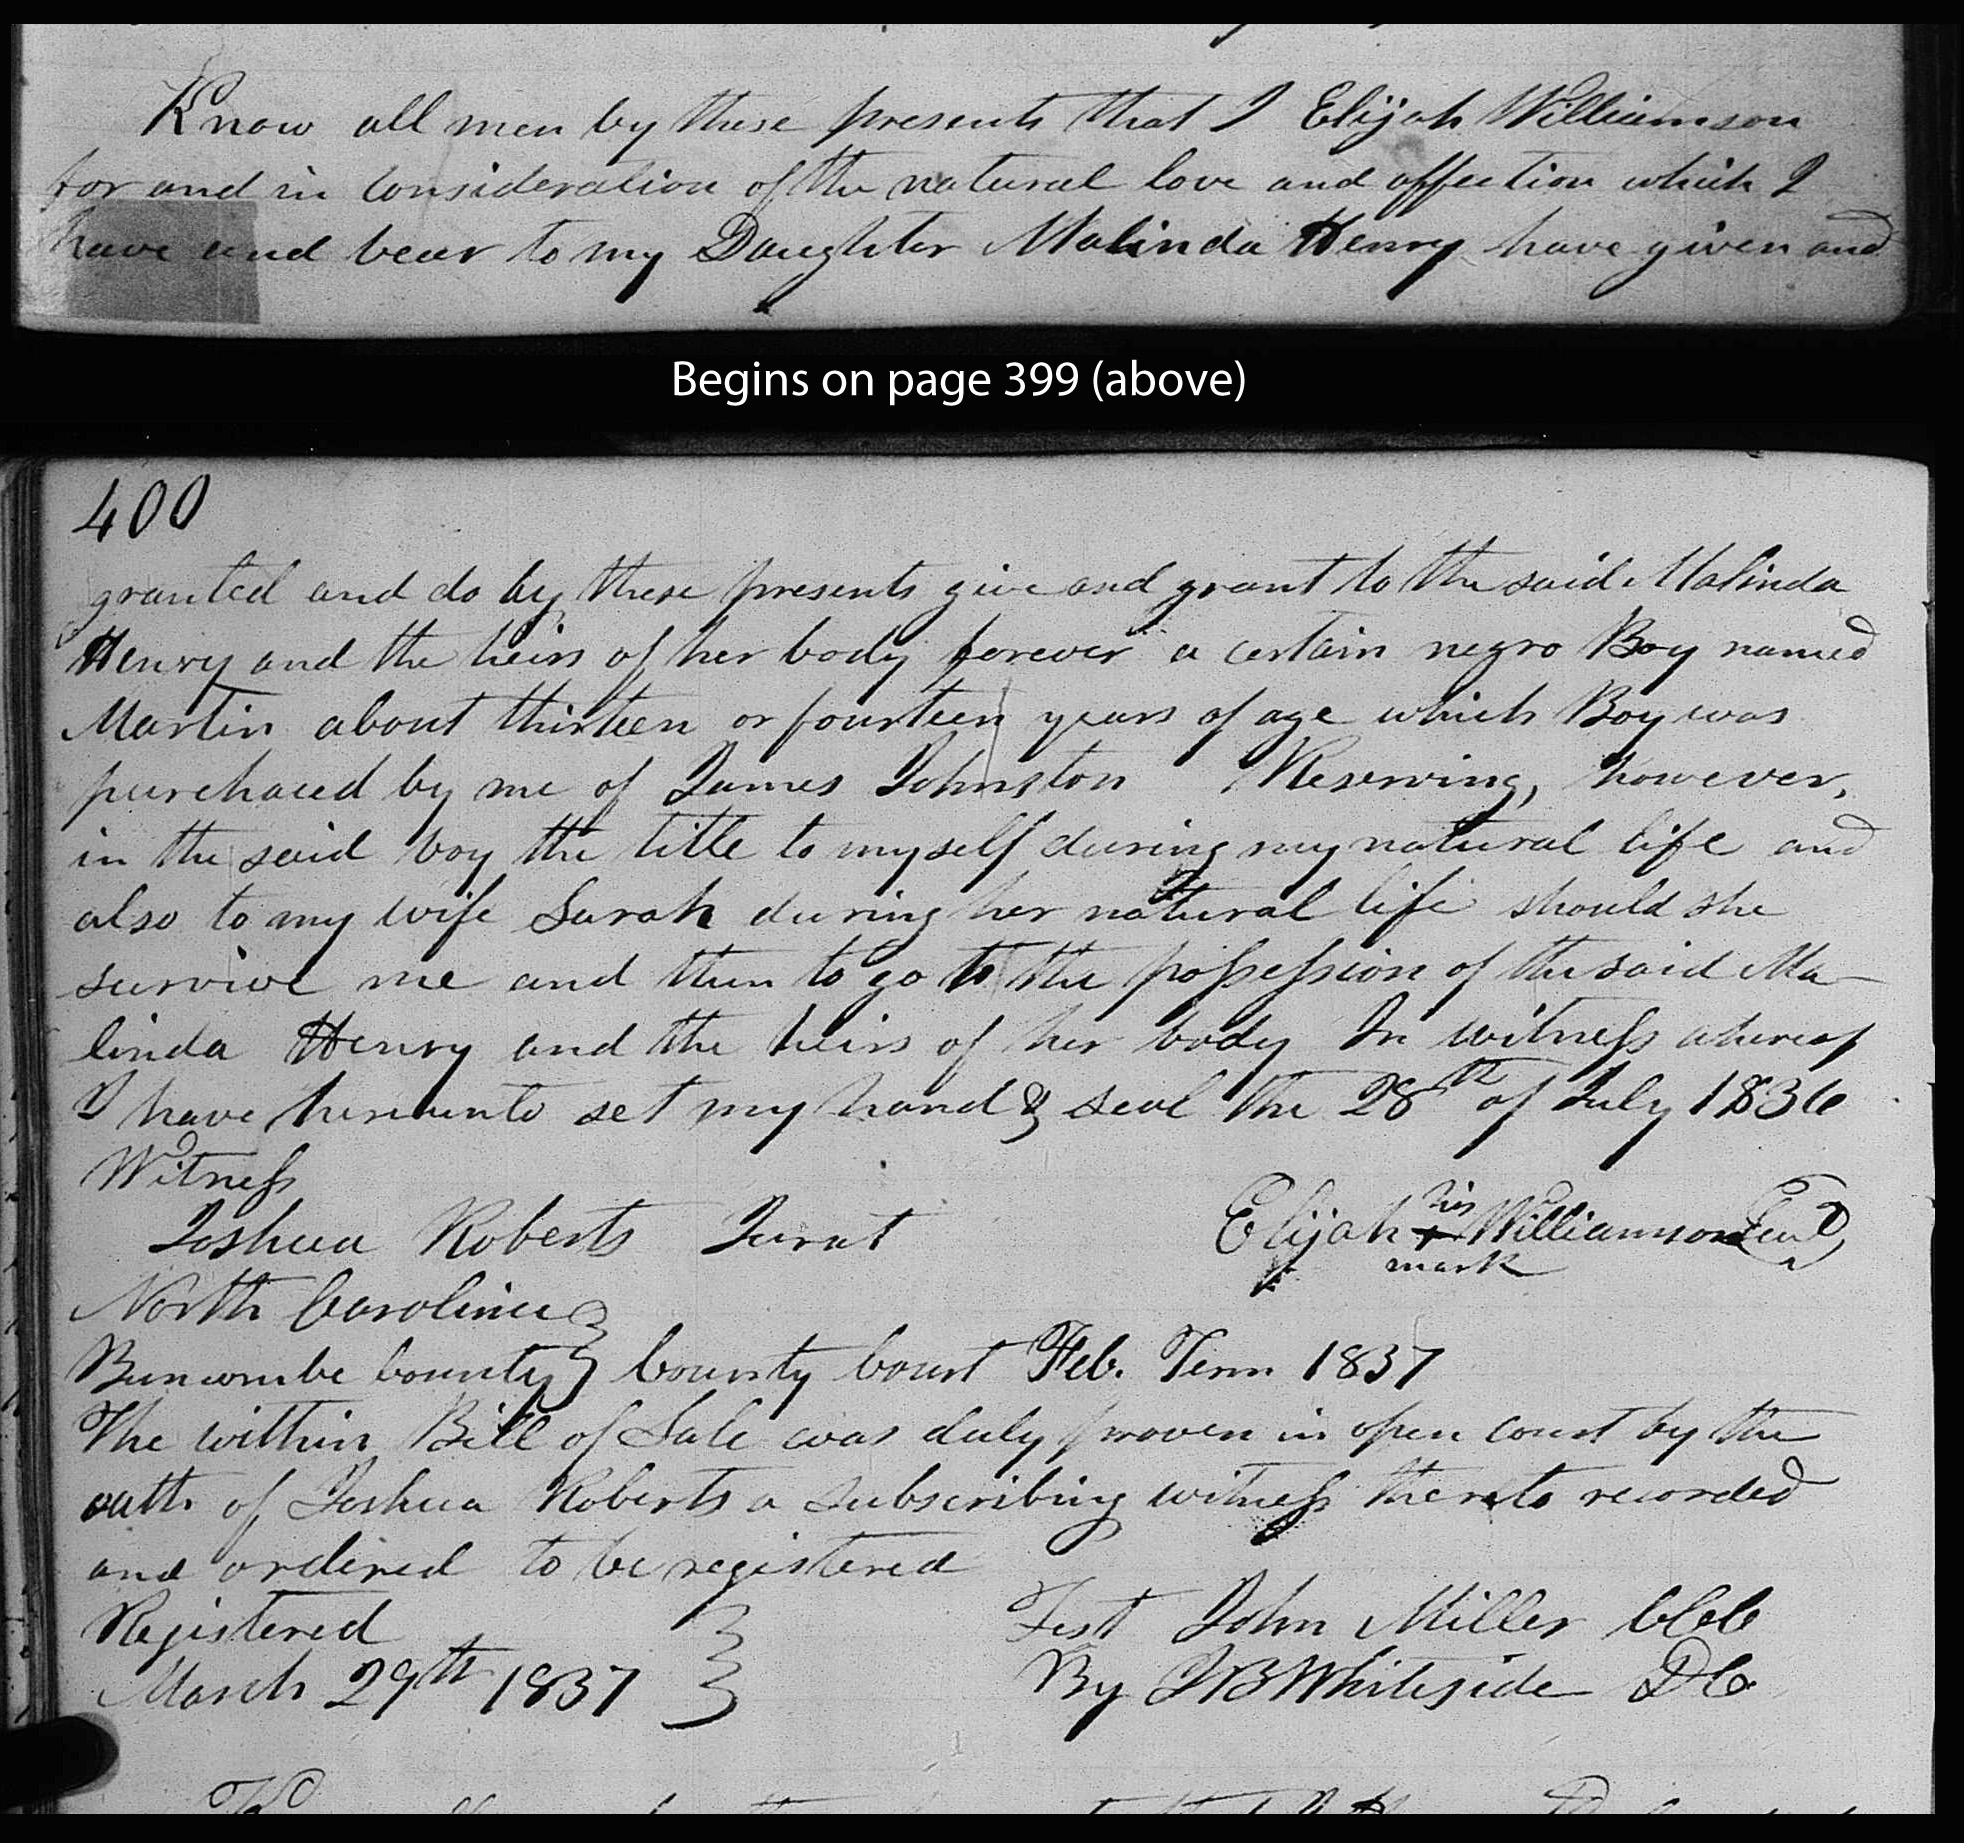 Know all men by these presents that I Elijah Williamson
for and in consideration of the natural love and affection which I
have and bear to my Daughter Malinda Henry have given and
Begins on page 399 (above)
400
granted and do by these presents give and grant to the said Malinda
Henry and the heirs of her body forever a certain negro Boy named
Martin about thirteen or fourteen years of age which Boy was
purchaced by me of James Johnston Reserving, however,
in the said boy the title to myself during my natural life and
also to my wife Sarah during her natural life should she
survive me and then to go to the possession of the said Ma-
linda Henry and the heirs of her body In witness whereof
I have hereunto set my hand & seal the 28th of July 1836
Witness
Joshua Roberts Jurat Elijah his + mark Williamson Seal
North Carolina
Buncombe County County Court Feb. Term 1837
The within Bill of Sale was duly proven in open court by the
oath of Joshua Roberts a subscribing witness thereto recorded
and ordered to be registered
Registered Test John Miller CCC
March 29th 1837 By JB Whiteside DC